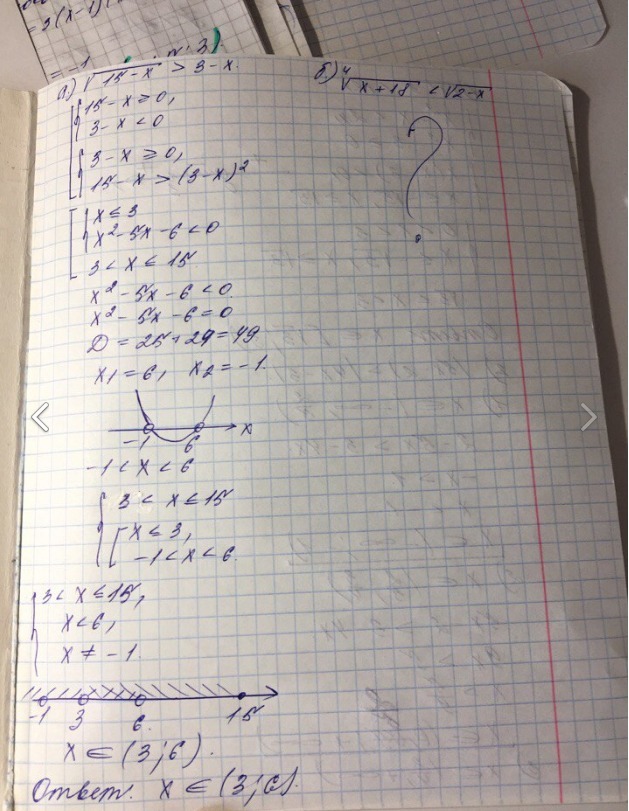 = 3(x-1)
= -1
а) √15-x > 3-x.
15-x ≥ 0,
3-x < 0
3-x ≥ 0,
15-x > (3-x)²
x ≤ 3
x² - 5x - 6 < 0
3 < x ≤ 15
x² - 5x - 6 < 0
x² - 5x - 6 = 0
D = 25 + 24 = 49
x₁ = 6, x₂ = -1.
-1 6 x
-1 < x < 6
3 < x ≤ 15
x ≤ 3,
-1 < x < 6.
3 < x ≤ 15,
x < 6,
x ≠ -1.
-1 3 6 15
x ∈ (3; 6).
Ответ. x ∈ (3; 6).
б) ⁴√x+18 < √2-x
?